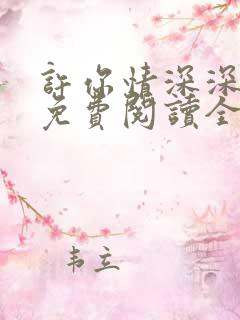 許你情深深
免費閱讀全
韦立